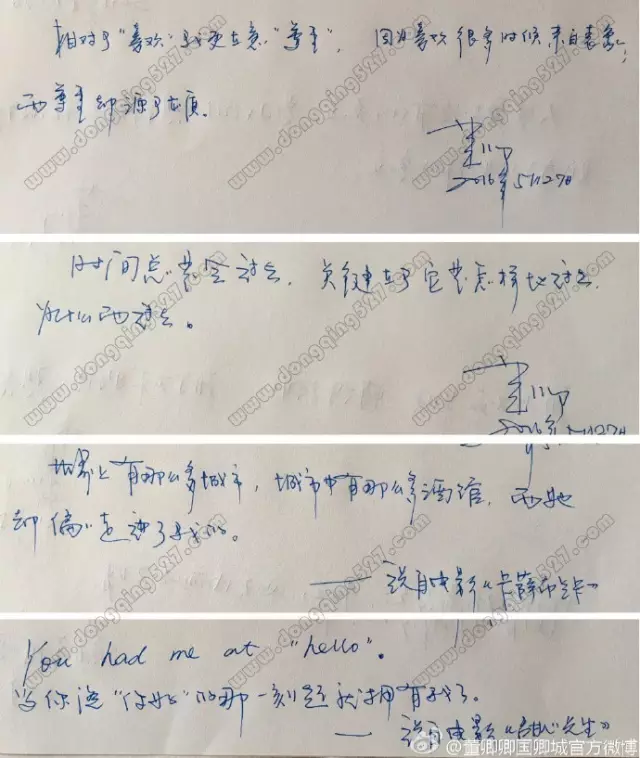 相对于“喜欢”我更在意“尊重”，因为喜欢很多时候来自表象，
而尊重却源于本质。
董卿
2016年5月27日
时间总要会过去，关键在于它要怎样地过去，
为什么而过去。
董卿
2016年5月27日
世界上有那么多城市，城市中有那么多酒馆，而她
却偏偏走进了我的。
——说自电影《卡萨布兰卡》
You had me at "hello".
当你说“你好”的那一刻起就拥有我了。
——说自电影《甜心先生》
www.dongqing527.com
@董卿卿国卿城官方微博